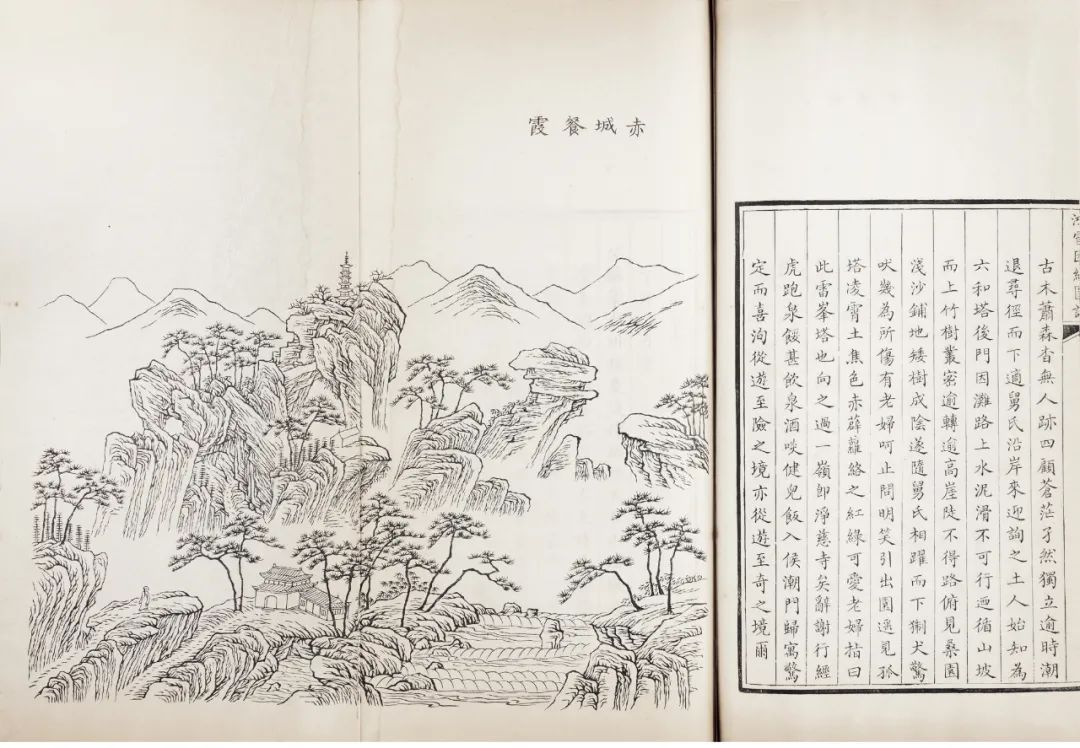 古木蕭森杳無人跡四顧蒼茫孑然獨立逾時潮
退尋徑而下適舅氏沿岸來迎詢之土人始知為
六和塔後門因灘路上水泥滑不可行迺循山坡
而上竹樹叢密逾轉逾高崖陡不得路俯見桑園
淺沙鋪地矮樹成陰遂隨舅氏相躍而下猘犬驚
吠幾為所傷有老婦呵止問明笑引出園遙見孤
塔凌霄土焦色赤薜蘿絡之紅綠可愛老婦指曰
此雷峯塔也向之過一嶺即淨慈寺矣辭謝行經
虎跑泉餒甚飲泉酒啖健兒飯入候潮門歸寓驚
定而喜洵從遊至險之境亦從遊至奇之境爾
赤城餐霞